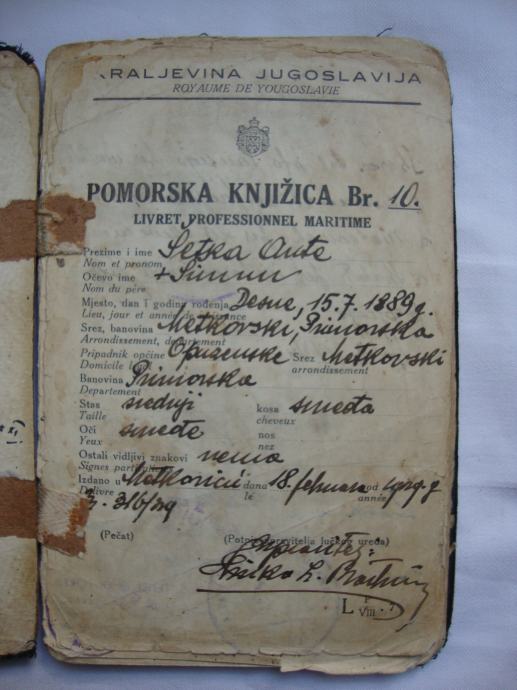 KRALJEVINA JUGOSLAVIJA
ROYAUME DE YOUGOSLAVIE
POMORSKA KNJIŽICA Br. 10.
LIVRET PROFESSIONNEL MARITIME
Prezime i ime Setka Ante
Nom et prenom
Očevo ime + Simun
Nom du père
Mjesto, dan i godina rođenja Desne, 15.7.1889 g.
Lieu, jour et année de naissance
Srez, banovina Metkovski, Primorska
Arrondissement, departement
Pripadnik općine Opuzenske Srez Metkovski
Domicile arrondissement
Banovina Primorska
Departement
Stas srednji kosa smeđa
Taille cheveux
Oči smeđe nos
Yeux nez
Ostali vidljivi znakovi nema
Signes particuliers
Izdano u Metkoviću dana 18. februara od 1929. g
Délivre le année
316/29
(Pečat) (Potpis upravitelja lučkog ureda)
L VIII